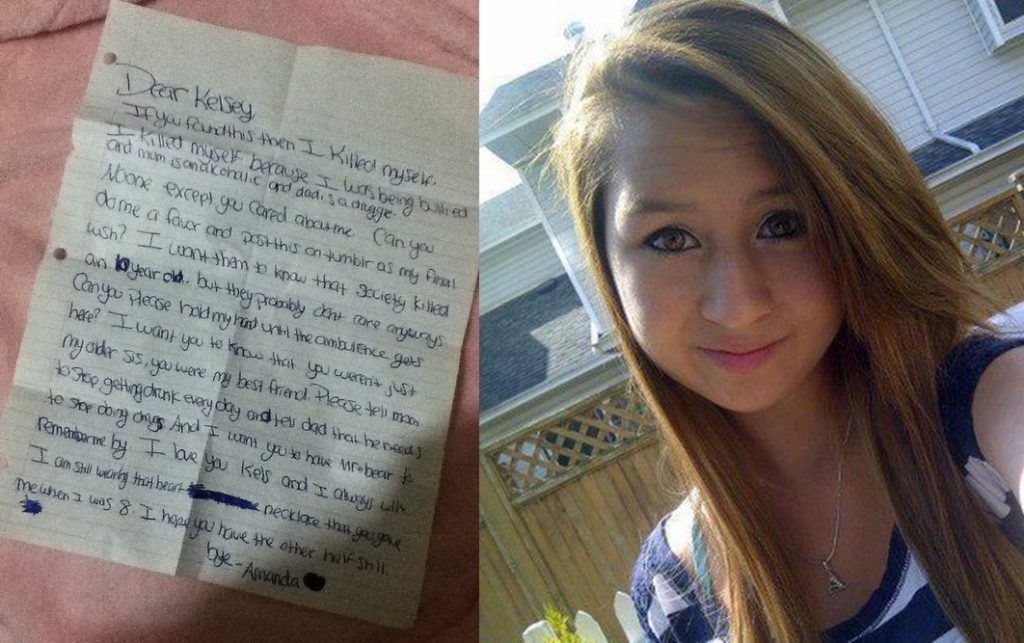 Dear Kelsey
If you found this then I killed myself.
I killed myself because I was being bullied
and mum is an alcoholic and dad is a druggie.
Noone except you cared about me. Can you
do me a favor and post this on tumblr as my final
wish? I want them to know that society killed
an 10 year old, but they probably dont care anyways
Can you Please hold my hand until the ambulence gets
here? I want you to know that you weren't just
my older sis, you were my best friend. Please tell mom
to stop getting drunk every day and tell dad that he needs
to stop doing drugs. And I want you to have Mr. bear to
remember me by. I love you Kels and I always will.
I am still wearing that heart necklace that you gave
me when I was 8. I hope you have the other half still.
bye - Amanda
A